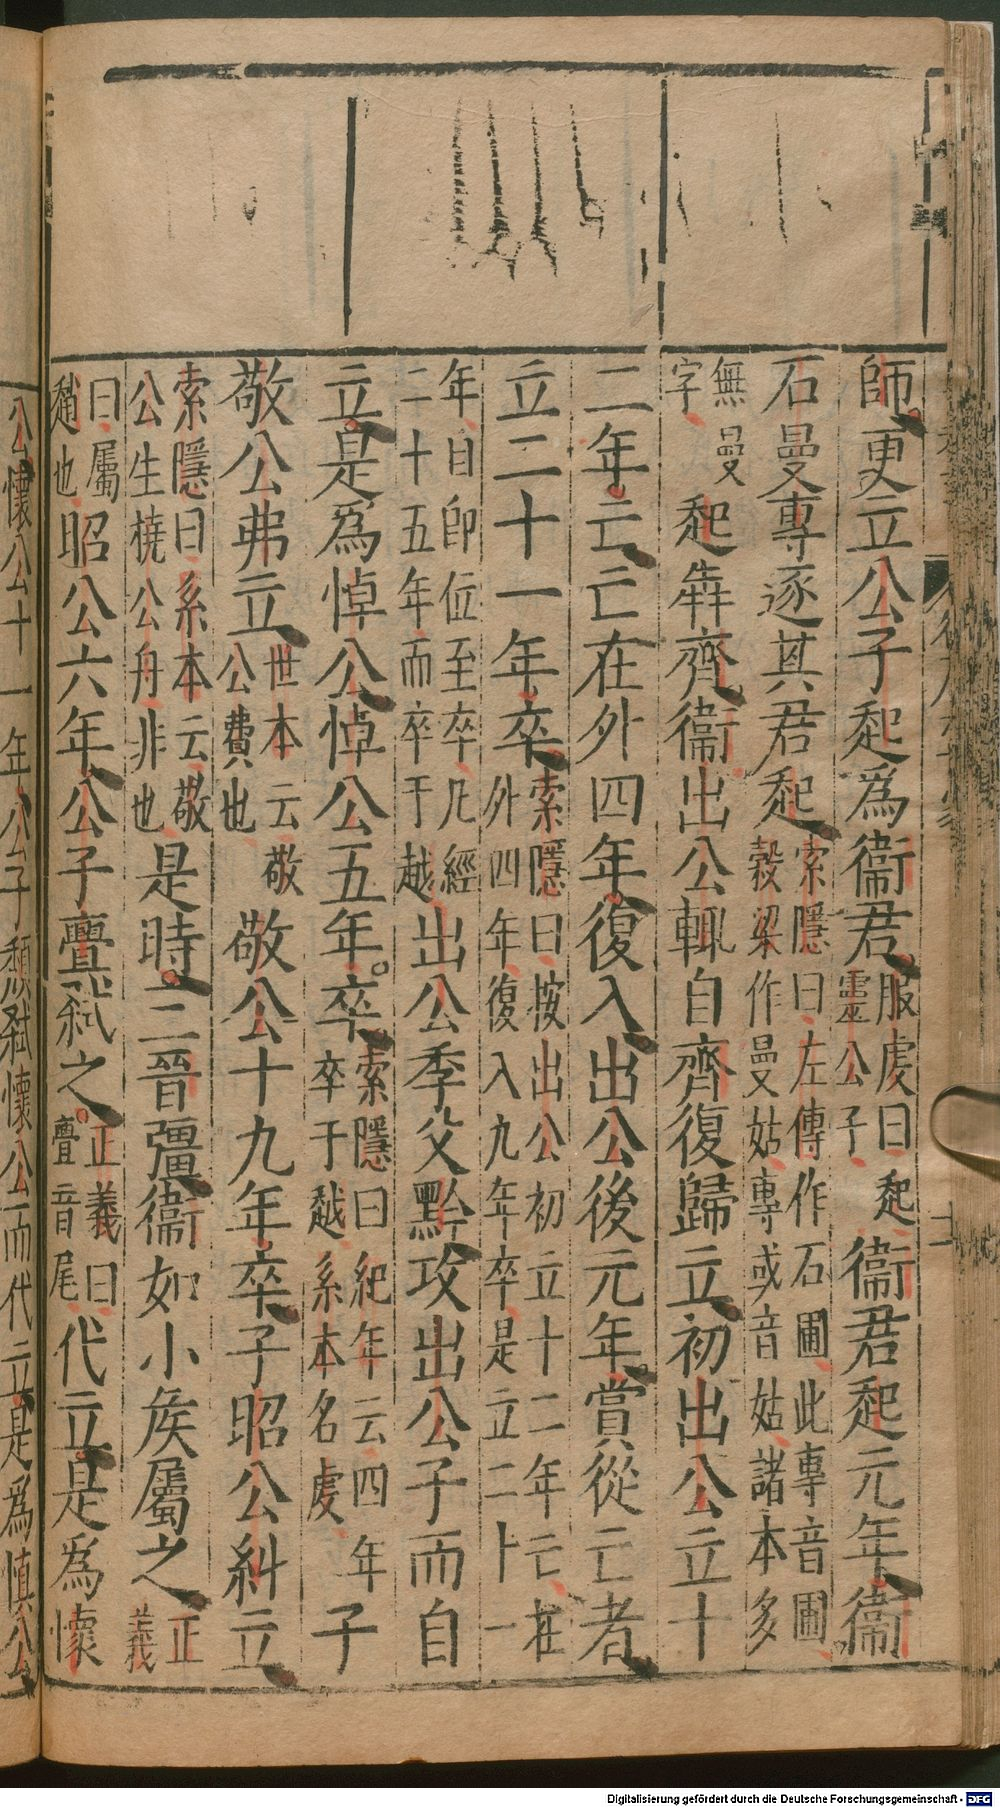 師更立公子起爲衞君服虔曰起靈公子衞君起元年衞
石曼專逐其君起索隱曰左傳作石圃此專音圃穀梁作曼姑專或音姑諸本多
無曼字起犇齊衞出公輒自齊復歸立初出公立十
二年亡亡在外四年復入出公後元年賞從亡者
立二十一年卒索隱曰按出公初立十二年亡在外四年復入九年卒是立二十一
年自即位至卒凡經二十五年而卒于越出公季父黔攻出公子而自
立是爲悼公悼公五年卒索隱曰紀年云四年卒于越系本名虔子
敬公弗立世本云敬公費也敬公十九年卒子昭公糾立
索隱曰系本云敬公生橈公舟非也是時三晉彊衞如小矦屬之正義
曰屬趙也昭公六年公子亹弑之正義曰亹音尾代立是爲懷
公懷公十一年公子頹弑懷公而代立是爲慎公
Digitalisierung gefördert durch die Deutsche Forschungsgemeinschaft - DFG